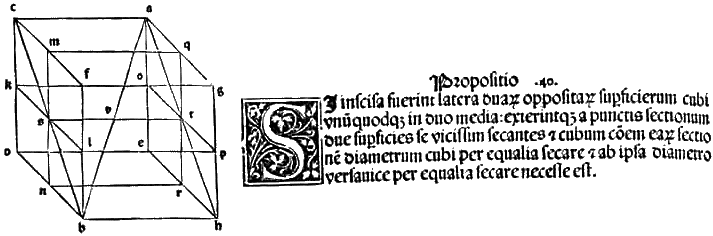 c a
m q
f
k o g
s v t
l
o e p
n r
b h
Propositio .40.
SI inscisa fuerint latera duaꝝ oppositaꝝ supficierum cubi
vnūquodqꝫ in duo media: exierintqꝫ a punctis sectionum
due supficies se vicissim secantes ⁊ cubum cōem eaꝝ sectio
nē diametrum cubi per equalia secare ⁊ ab ipsa diametro
versa vice per equalia secare necesse est.